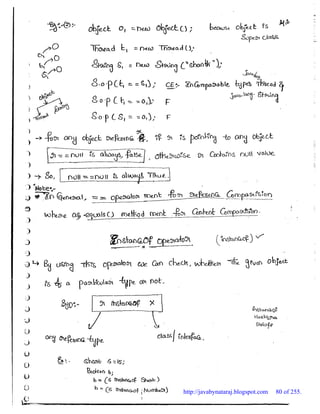 Eg:-②:- object O1 = new Object(); because object is
Super class
Thread t1 = new Thread();
String S1 = new String("chanti");
S.o.p(t1 == S1); CE:- InComparable types Thread &
java.lang.String
S.o.p(t1 == O1); F
S.o.p(S1 == O1); F
object
Thread String
→ for any object reference r, if r is pointing to any object
r == null is always false, otherwise r Contains null value
→ So, null == null is always True.
Note:-
In General, == operator meant for reference Comparision
where as .equals() method meant for Content Comparision.
InstanceOf operator (instanceof) ✓
By using this operator we Can check, whether the given object
is of a particular type or not.
Syn:- r instanceof X
any reference type class/interface.
Eg:- short s=15;
Boolean b;
b = (s instanceof Short)
b = (s instanceof Number)
http://javabynataraj.blogspot.com 80 of 255.